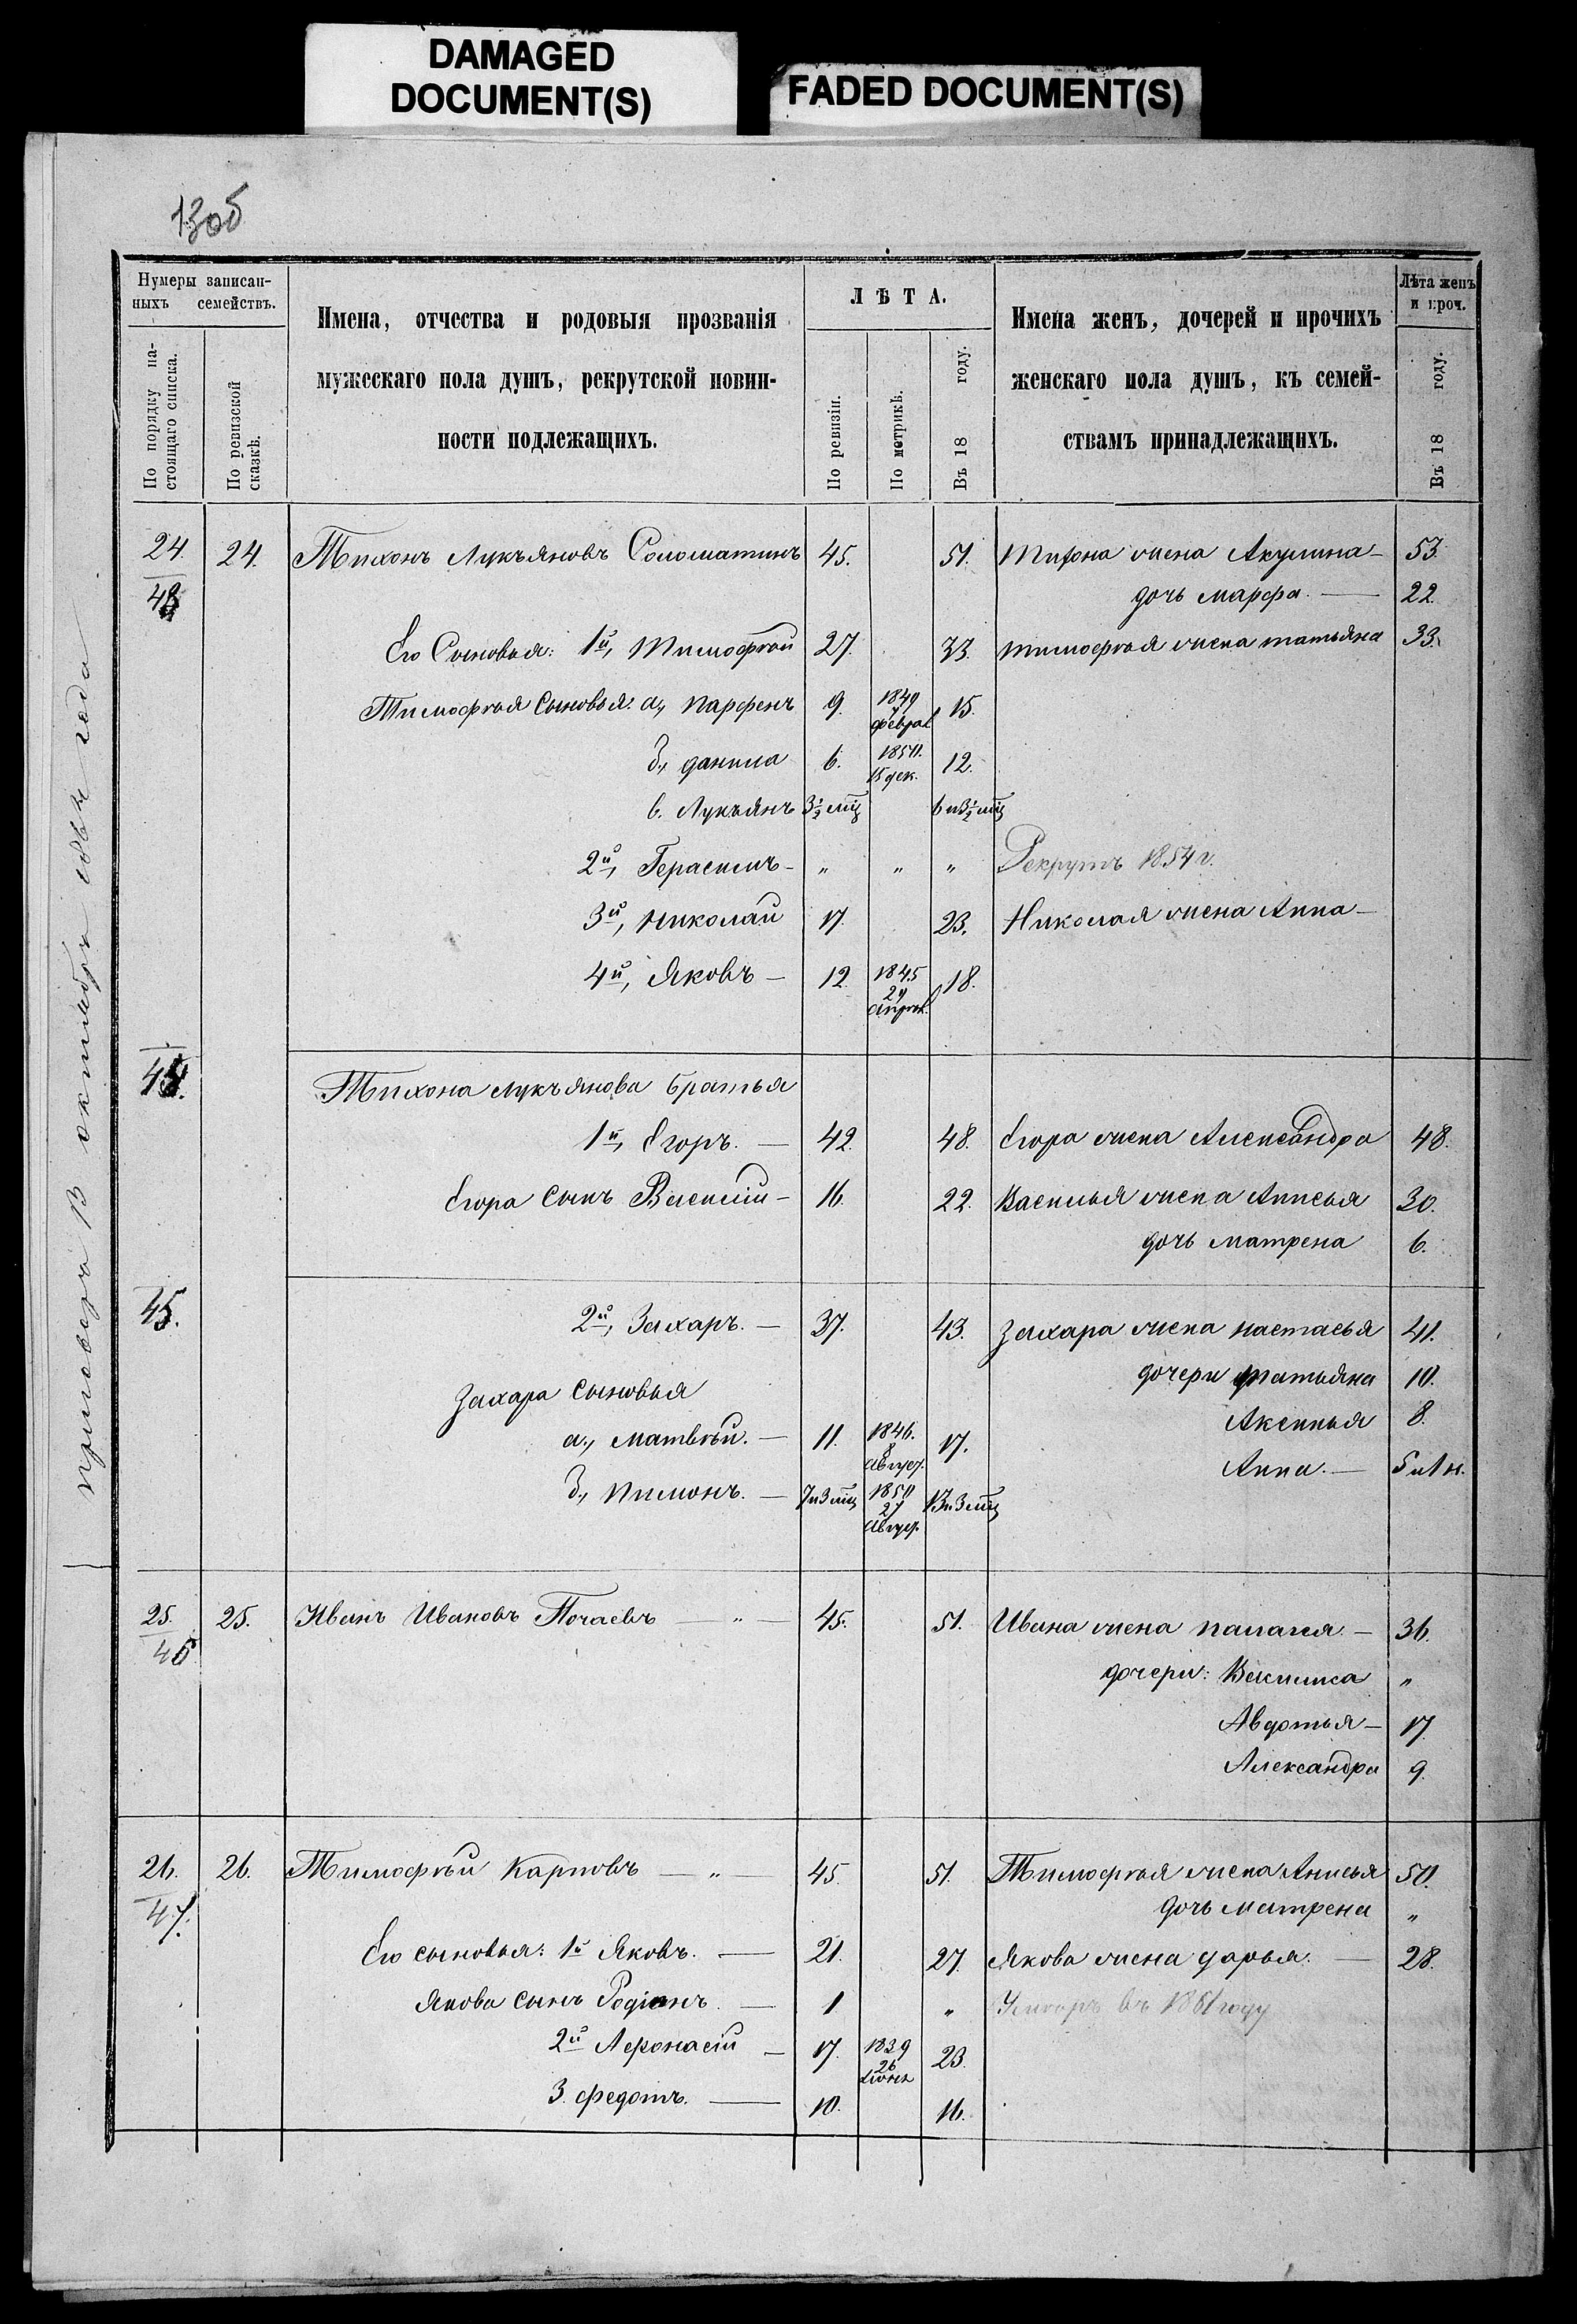 DAMAGED
DOCUMENT(S)
FADED DOCUMENT(S)
130б
Нумеры записан-
ныхъ семействъ.
По порядку на-
стоящаго списка.
По ревизской
сказкѣ.
Имена, отчества и родовыя прозванія
мужескаго пола душъ, рекрутской повин-
ности подлежащихъ.
ЛѢТА.
По ревизіи.
По метрикѣ.
Въ 18 году.
Имена женъ, дочерей и прочихъ
женскаго пола душъ, къ семей-
ствамъ принадлежащихъ.
Лѣта женъ
и проч.
Въ 18 году.
24. 24. Тихонъ Лукъяновъ Соломатинъ 45. 51. Тихона жена Акулина — 53.
дочь Марфа. — 22.
Его Сыновья: 1й, Тимофей 27. 33. Тимофея жена татьяна 33.
Тимофея Сыновья: а., Парфенъ 9. 1849 7 феврал 15.
б., данила 6. 1850. 15 дек. 12.
в. Лукьянъ 3½ мц 6 и 3½ мц
2й, Герасимъ — „ „ „ Рекрутъ 1854 г.
3й, Николай 17. 23. Николая жена Анна —
4й, Яковъ — 12. 1845 29 апрел. 18.
Тихона Лукъянова братья
1й, Егоръ. — 42. 48. Егора жена Александра 48.
Егора сынъ Василій — 16. 22. Василья жена Анисья 30.
дочь матрена 6.
45. 2й, Захаръ. — 37. 43. Захара жена настасья 41.
дочери татьяна 10.
Захара сыновья Аксинья 8.
а., Матвей. — 11. 1846. 8 август. 17.
Анна. — 5 и 1 н.
б., Пимонъ. — 7 и 3 мц 1850 27 август. 13 и 3 мц
25. 25. Иванъ Ивановъ Почаевъ — „ — 45. 51. Ивана жена палагея. — 36.
46 дочери: Василиса „
Авдотья — 17.
Александра 9.
26. 26. Тимофей Карповъ — „ — 45. 51. Тимофея жена Анисья 50.
47. дочь Матрена „
Его сыновья: 1й Яковъ. — 21. 27. Якова жена дарья. — 28.
Якова сынъ Родіонъ. — 1 „ Умеръ въ 1861 году
2й Афонасій — 17. 1839 26 Іюня 23.
3. федотъ. — 10. 16.
приговоръ 13 октября 1862 года